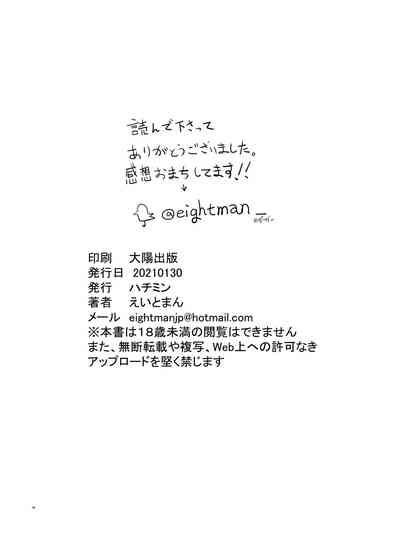 読んで下さって
ありがとうございました。
感想おまちしてます!!
↓
@eightman_
印刷　大陽出版
発行日　20210130
発行　ハチミン
著者　えいとまん
メール　eightmanjp@hotmail.com
※本書は18歳未満の閲覧はできません
また、無断転載や複写、Web上への許可なき
アップロードを堅く禁じます